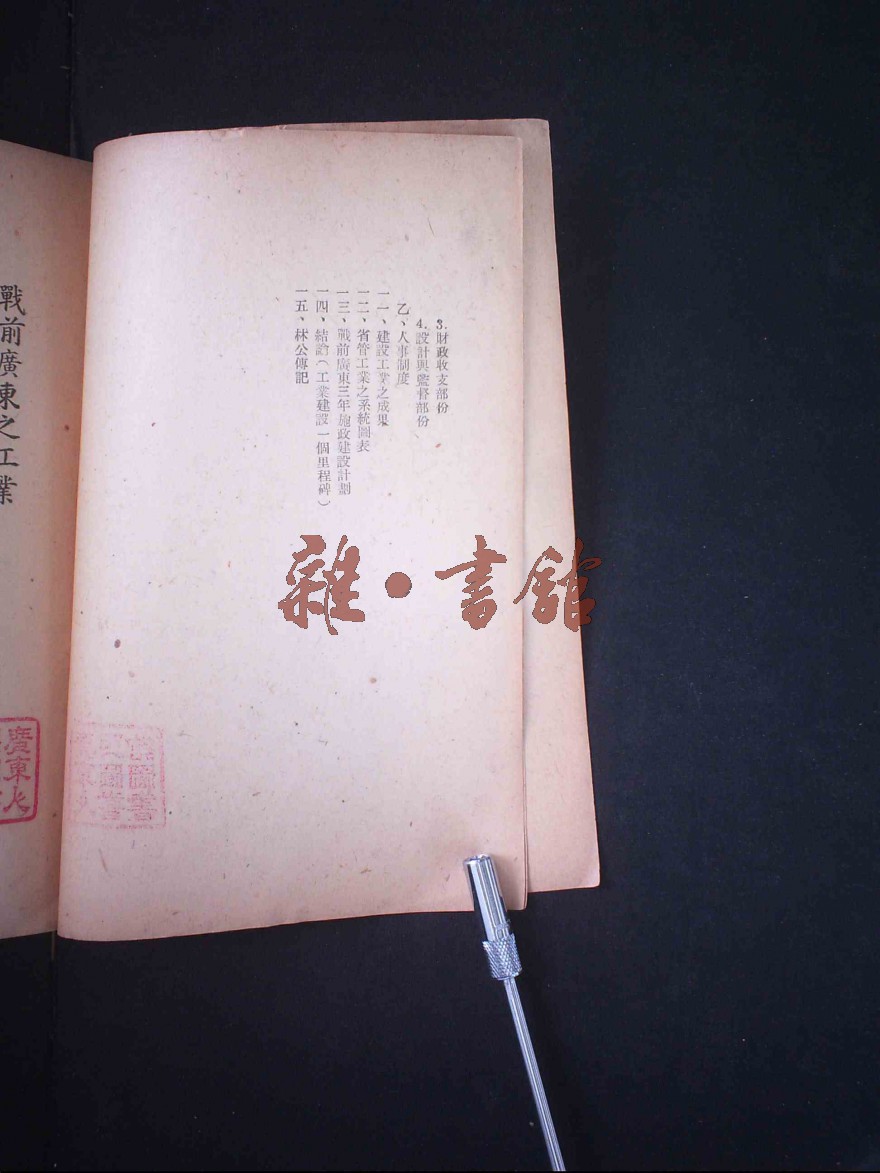 3.財政收支部份
4.設計與監督部份
乙、人事制度
一一、建設工業之成果
一二、省管工業之系統圖表
一三、戰前廣東三年施政建設計劃
一四、結論（工業建設一個里程碑）
一五、林公傳記
戰前廣東之工業
雜·書館
廣東火